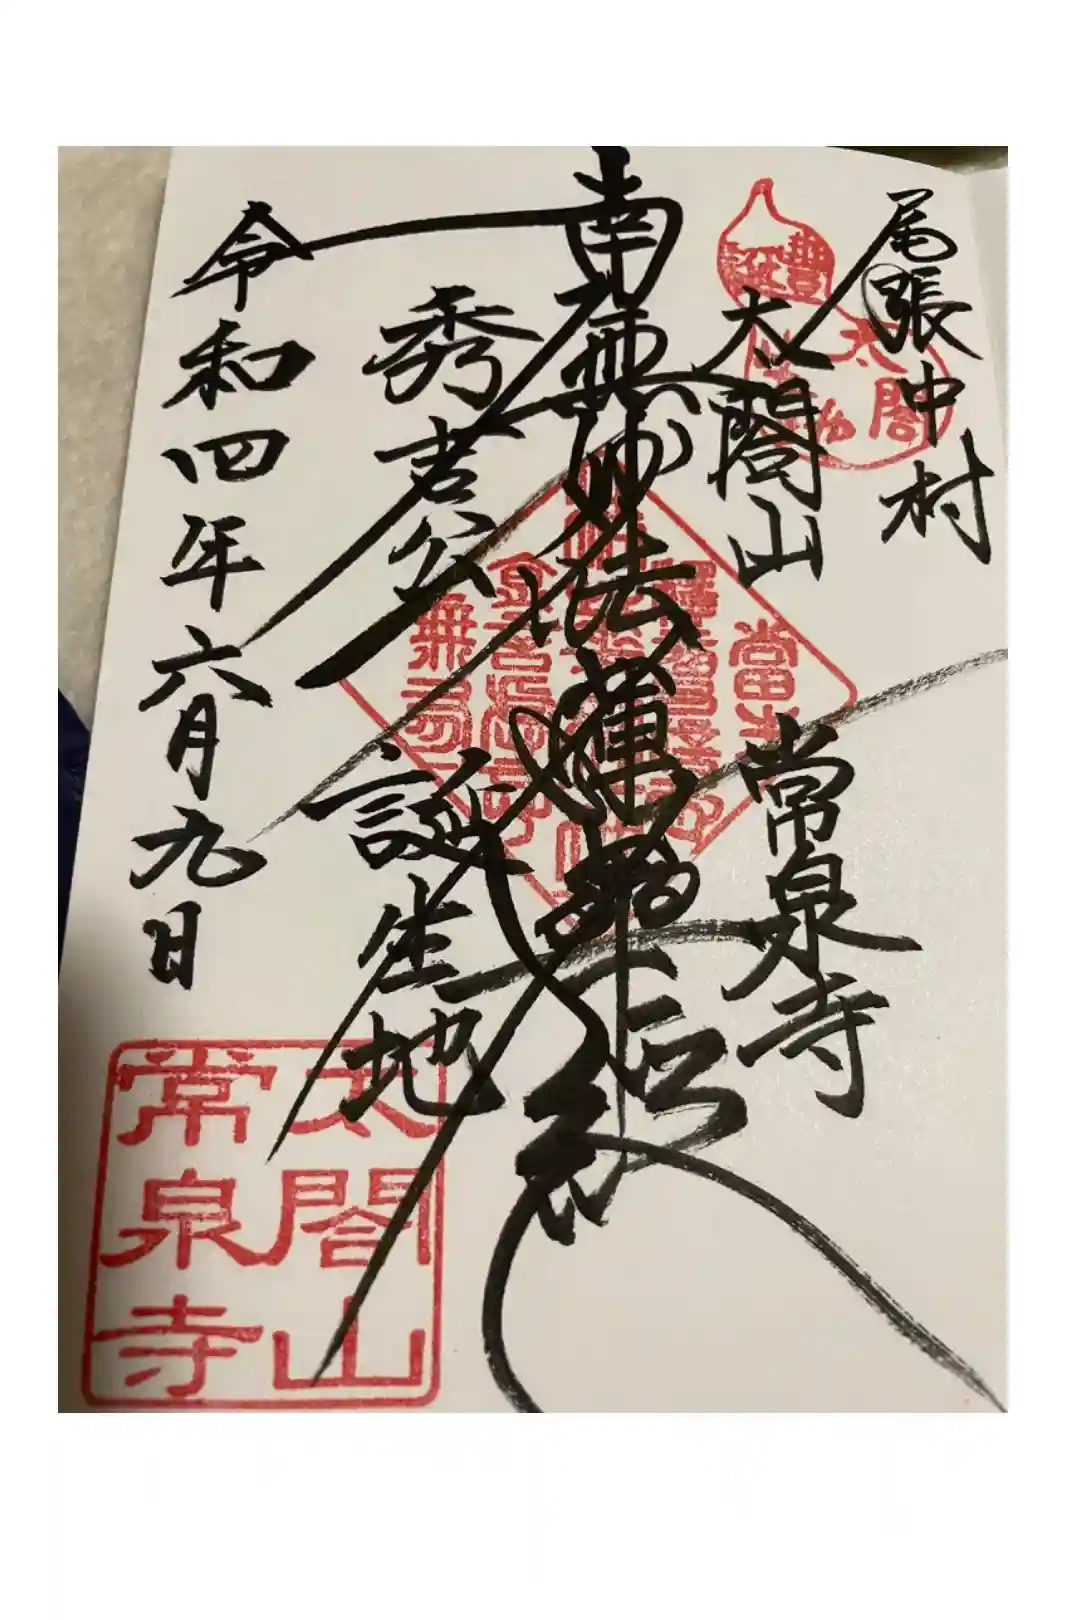 尾張中村
太閤山
常泉寺
南無妙法蓮華経
秀吉公
誕生地
令和四年六月九日
太閤
太閤山
常泉寺